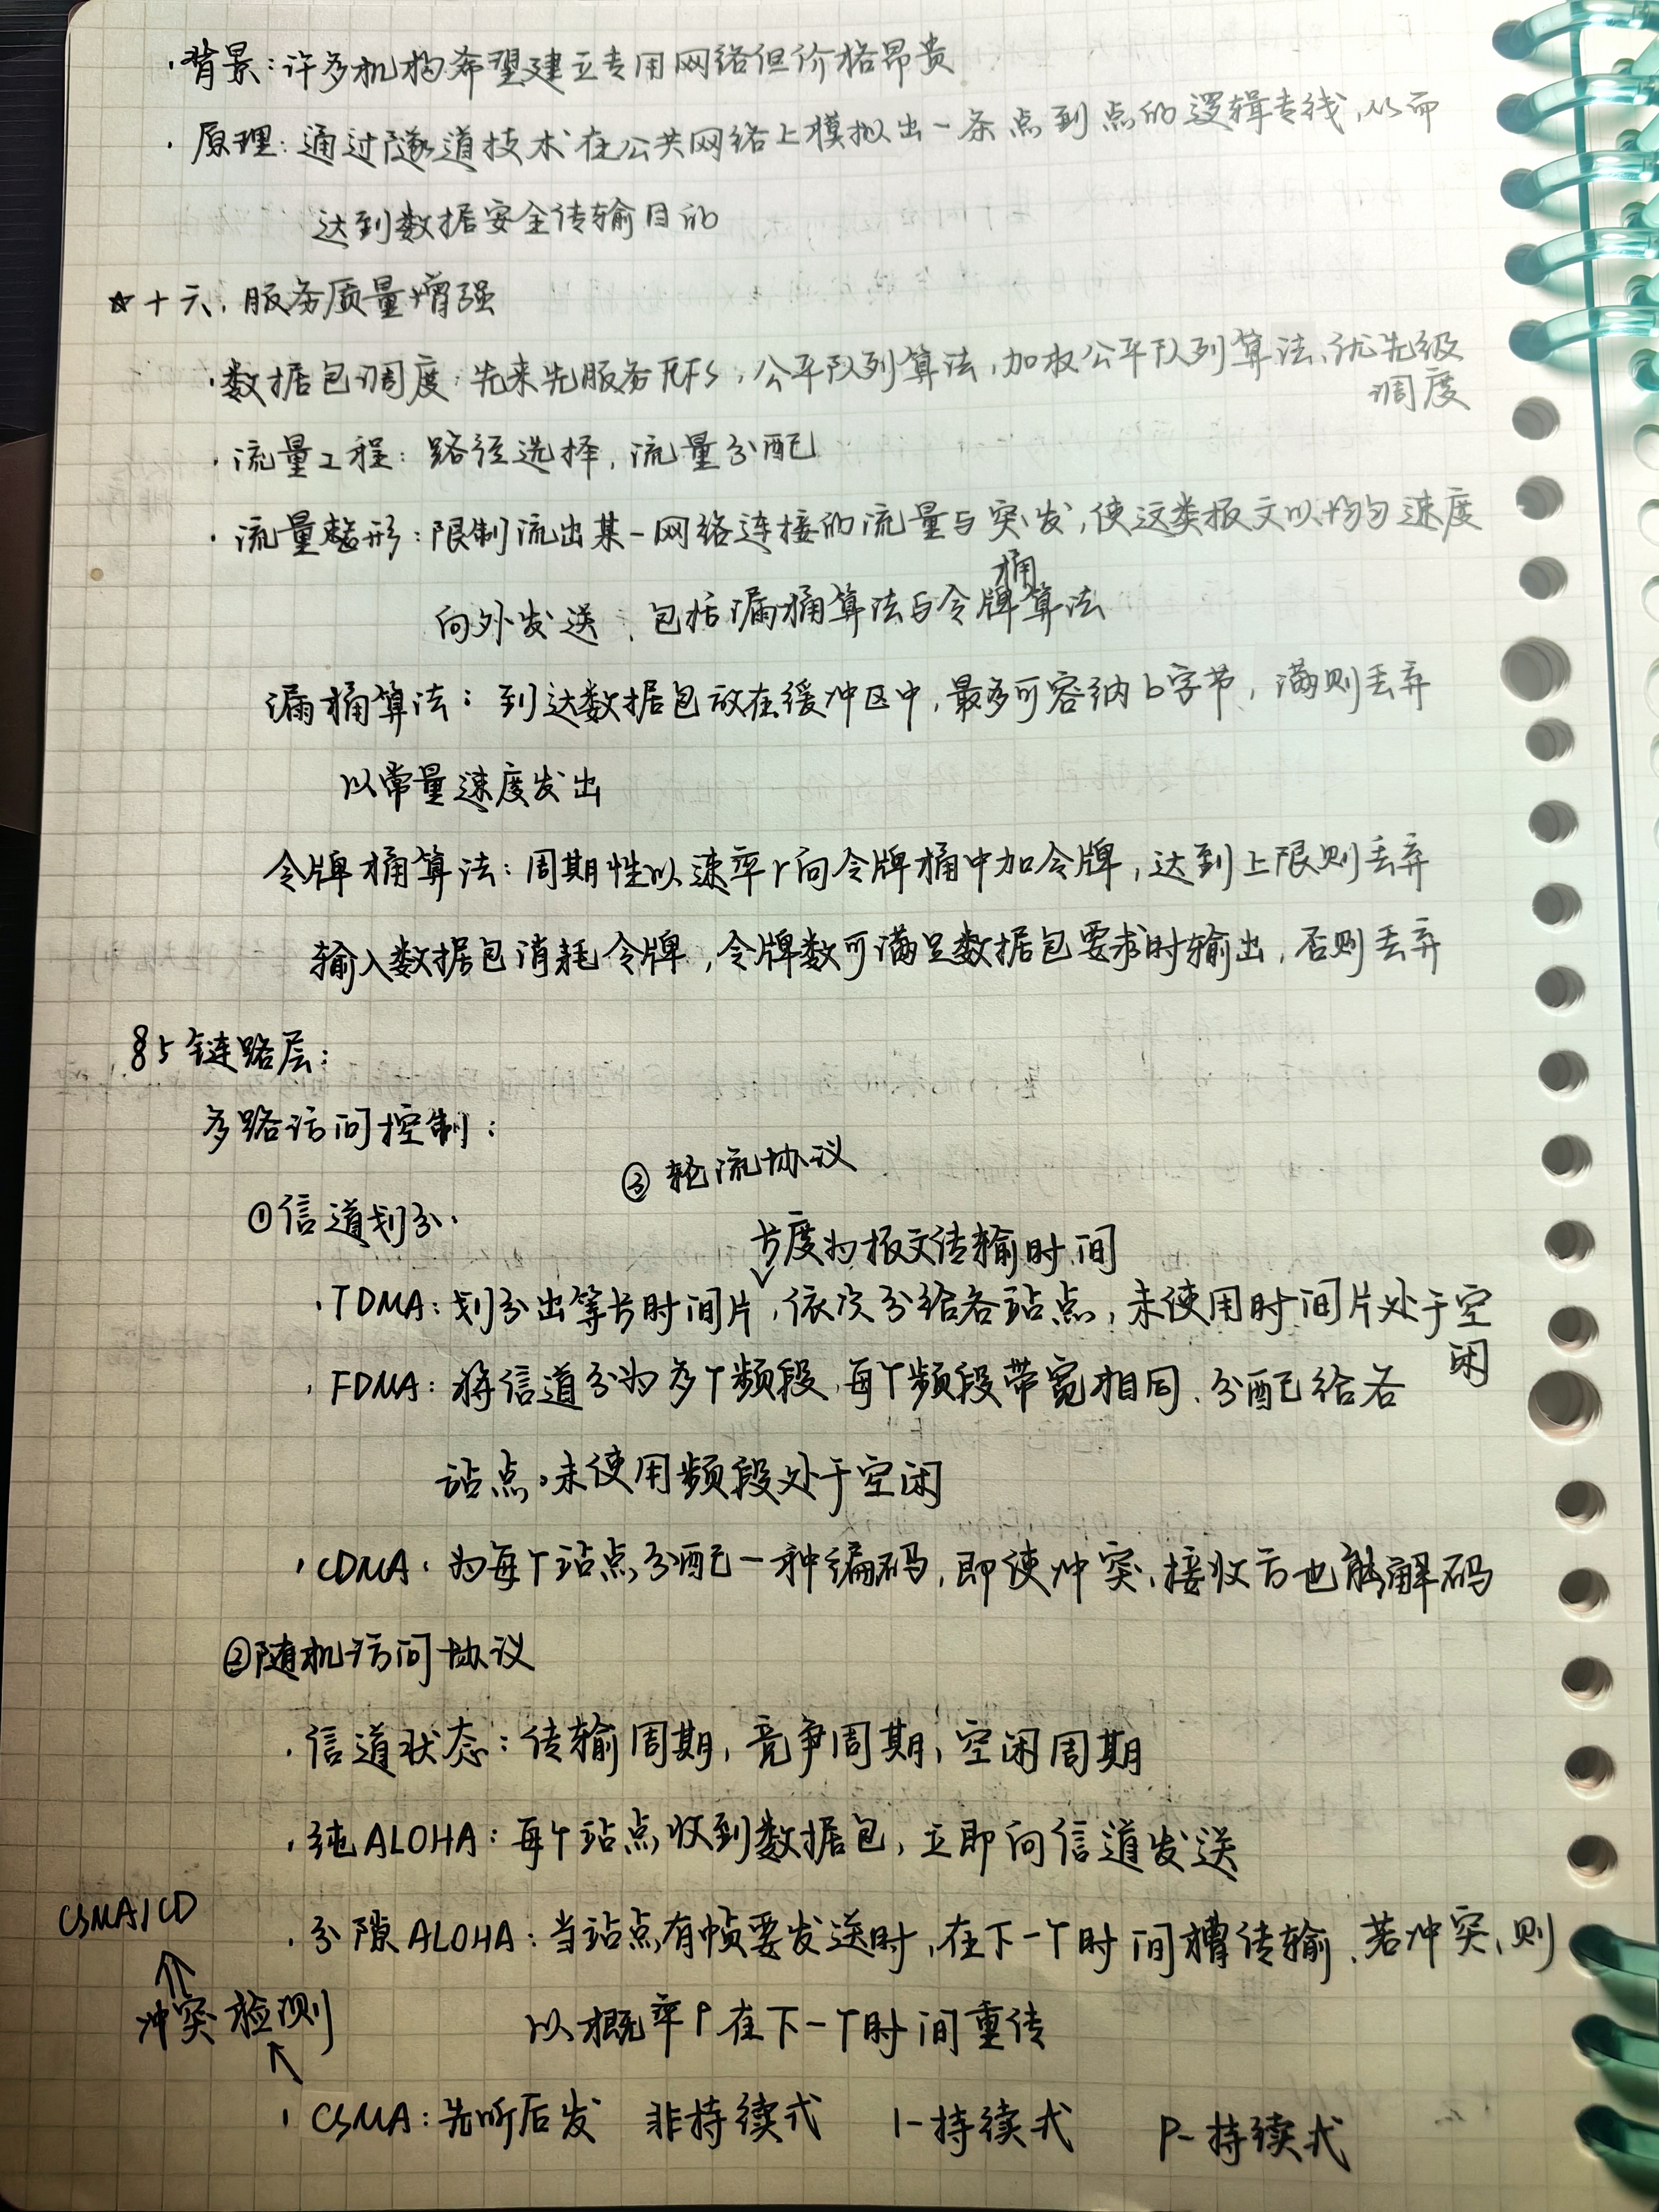 ·背景：许多机构希望建立专用网络但价格昂贵
·原理：通过隧道技术在公共网络上模拟出一条点到点的逻辑专线，从而
达到数据安全传输目的
☆十六、服务质量增强
·数据包调度：先来先服务FCFS，公平队列算法，加权公平队列算法、优先级
调度
·流量工程：路径选择，流量分配
·流量整形：限制流出某一网络连接的流量与突发，使这类报文以均匀速度
向外发送，包括漏桶算法与令牌桶算法
漏桶算法：到达数据包放在缓冲区中，最多可容纳b字节，满则丢弃
以常量速度发出
令牌桶算法：周期性以速率r向令牌桶中加令牌，达到上限则丢弃
输入数据包消耗令牌，令牌数可满足数据包要求时输出，否则丢弃
§5 链路层：
多路访问控制：
③轮流协议
①信道划分.
长度为报文传输时间
·TDMA：划分出等长时间片，依次分给各站点，未使用时间片处于空
闲
·FDMA：将信道分为多个频段，每个频段带宽相同、分配给各
站点。未使用频段处于空闲
·CDMA：为每个站点分配一种编码，即使冲突，接收方也能解码
②随机访问协议
·信道状态：传输周期，竞争周期，空闲周期
·纯ALOHA：每个站点收到数据包，立即向信道发送
CSMA/CD
·分隙ALOHA：当站点有帧要发送时，在下一个时间槽传输，若冲突，则
冲突检测
以概率P在下一个时间重传
·CSMA：先听后发 非持续式 1-持续式 P-持续式